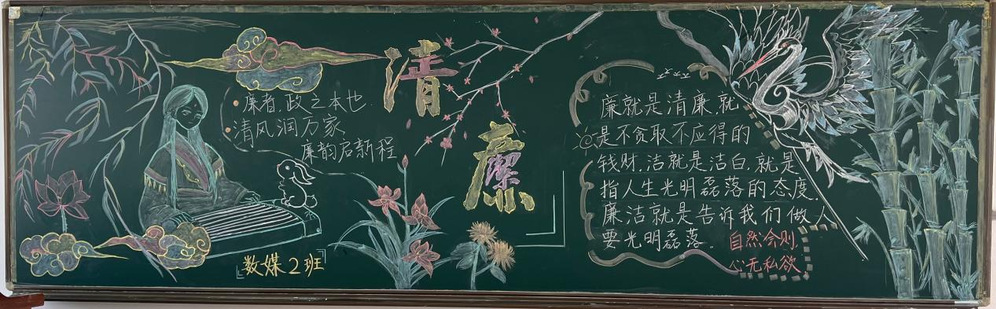 清廉
廉者,政之本也
清风润万家
廉韵启新程
数媒2班
廉就是清廉,就
是不贪取不应得的
钱财,洁就是洁白,就是
指人生光明磊落的态度.
廉洁就是告诉我们做人
要光明磊落.
自然合则,
心无私欲